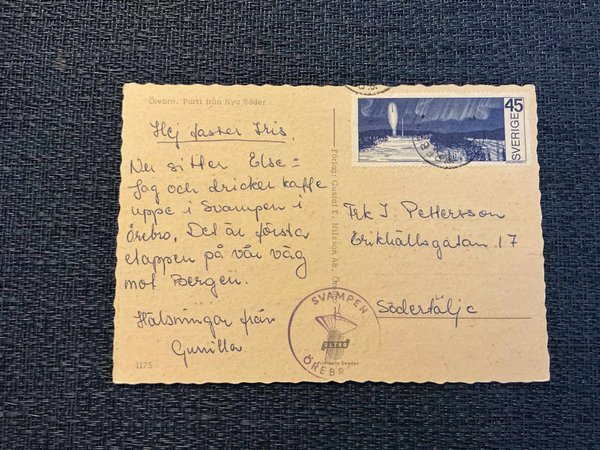 Örebro. Parti från Nya Söder
Hej faster Iris.
Nu sitter Else =
Jag och dricker kaffe
uppe i Svampen i
Örebro. Det är första
etappen på vår väg
mot Bergen.
Hälsningar från
Gunilla
1175
Förlag: Gustaf E. Nilsson AB,
SVERIGE 45
Frk I. Pettersson
Erikhällsgatan 17
Södertälje
SVAMPEN
ÖREBRO